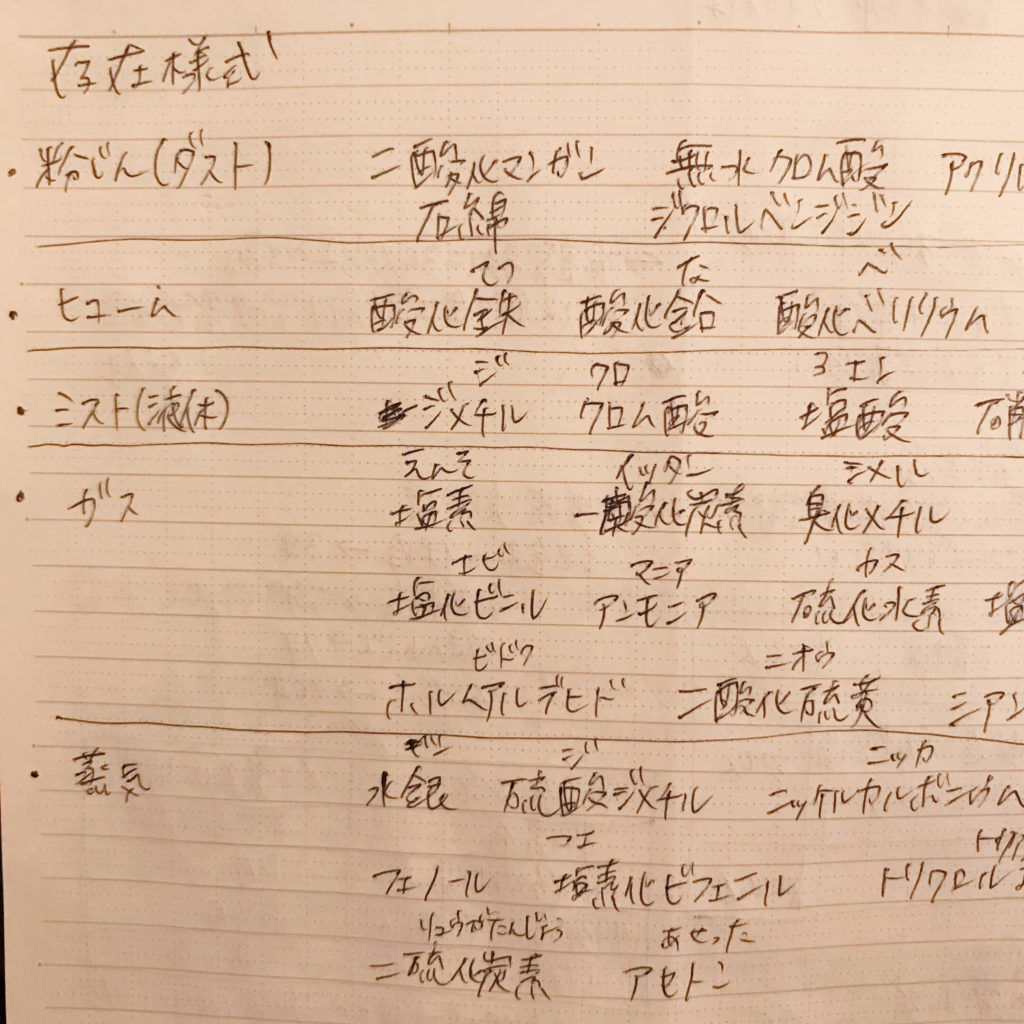 存在様式
・粉じん(ダスト) 二酸化マンガン 無水クロム酸 アクリロ
石綿 ジクロルベンジジン
てつ な べ
・ヒューム 酸化鉄 酸化鉛 酸化ベリリウム
ジ クロ エン
・ミスト(液体) ジメチル クロム酸 塩酸 硝
えんそ イッタン シメル
・ガス 塩素 一酸化炭素 臭化メチル
エビ マニア カス
塩化ビニル アンモニア 硫化水素 塩
ビドク ニオウ
ホルムアルデヒド 二酸化硫黄 シアン
ジ ニッカ
・蒸気 水銀 硫酸ジメチル ニッケルカルボニウム
フエ トリク
フェノール 塩素化ビフェニル トリクロル
リュウかたんじょう あせった
二硫化炭素 アセトン